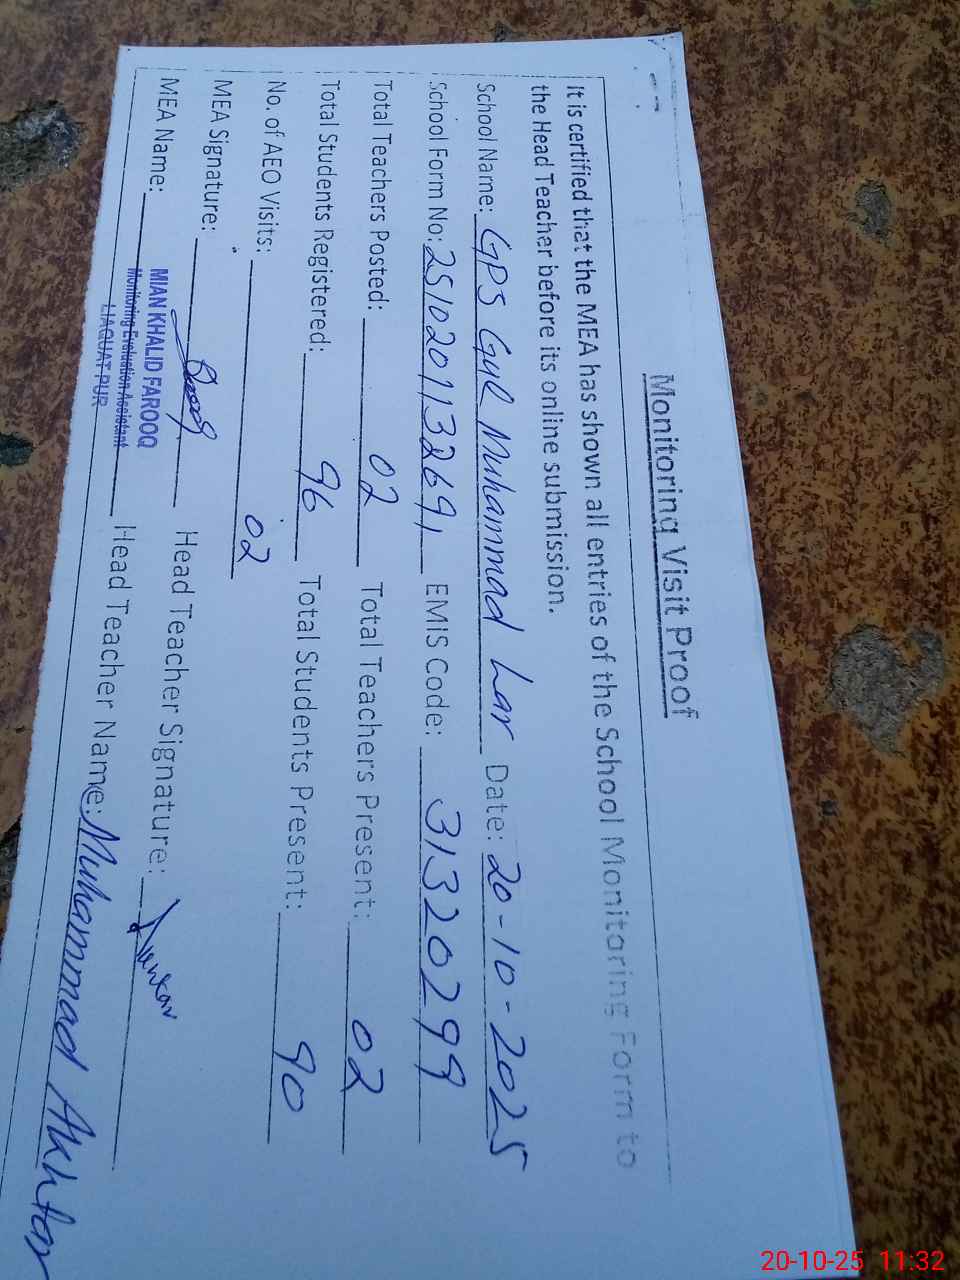 Monitoring Visit Proof
It is certified that the MEA has shown all entries of the School Monitoring Form to
the Head Teacher before its online submission.
School Name: GPS Gul Muhammad Lar Date: 20-10-2025
School Form No: 25102011332691 EMIS Code: 31320299
Total Teachers Posted: 02 Total Teachers Present: 02
Total Students Registered: 96 Total Students Present: 90
No. of AEO Visits: 02
MEA Signature: Head Teacher Signature:
MEA Name: MIAN KHALID FAROOQ Head Teacher Name: Muhammad Akhtar
Monitoring Evaluation Assistant
LIAQUAT PUR
20-10-25 11:32